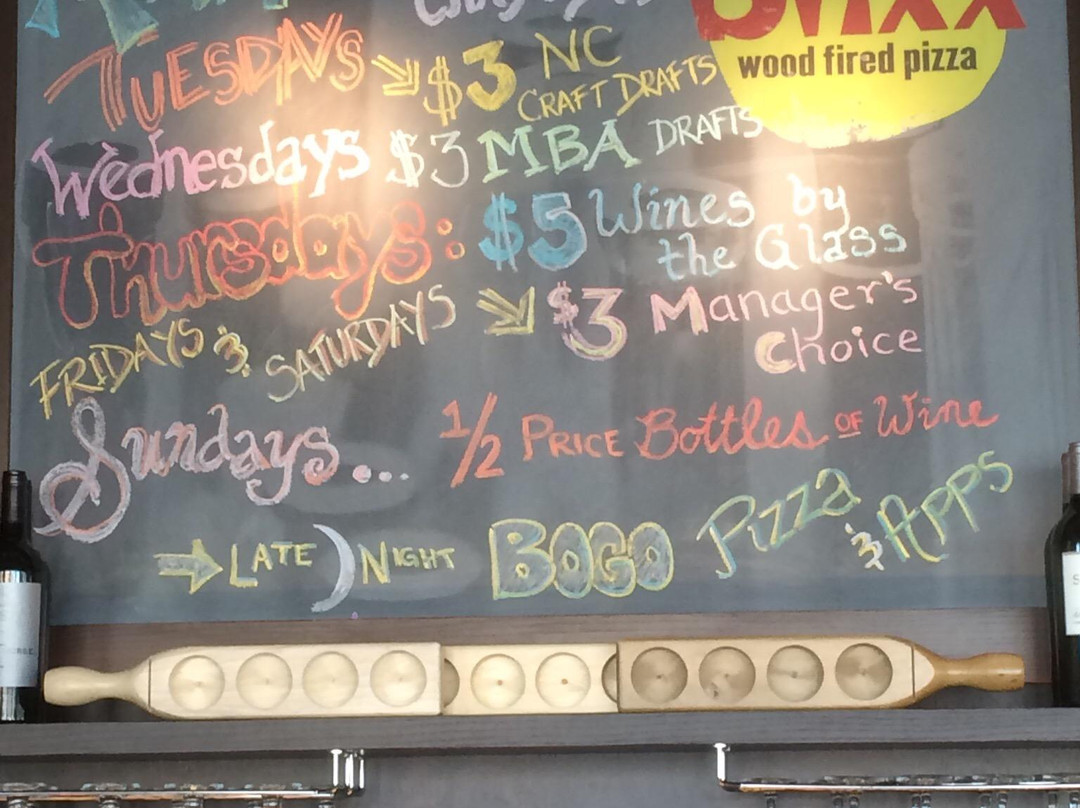 Brixx
wood fired pizza
TUESDAYS $3 NC CRAFT DRAFTS
Wednesdays $3 MBA DRAFTS
Thursdays: $5 Wines by the Glass
FRIDAYS & SATURDAYS $3 Manager's Choice
Sundays... 1/2 PRICE Bottles OF Wine
LATE NIGHT BOGO Pizza & Apps